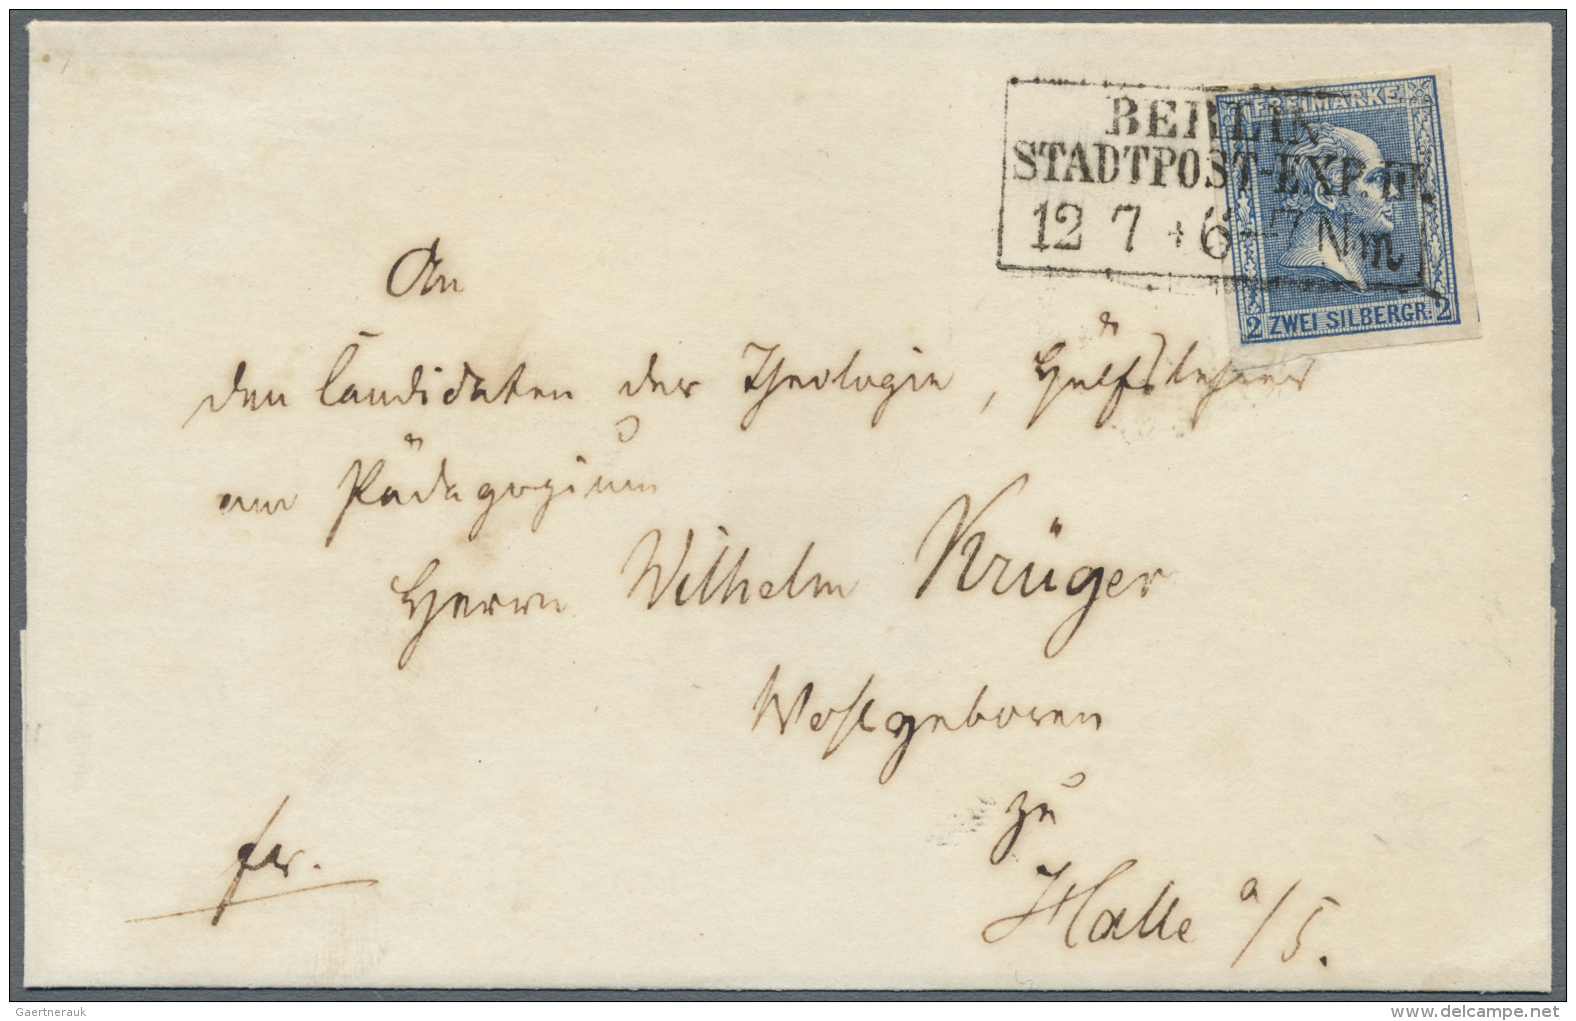 BERLIN
STADTPOST-EXP. III
12 7 * 6-7 Nm
FREIMARKE
2 ZWEI SILBERGR. 2
An
den Candidaten der Theologie, Hülfslehrer
am Pädagogium
Herrn Wilhelm Krüger
Wohlgeboren
zu
fr.
Halle a/S.
Gaertnerauk
www.delcampe.net